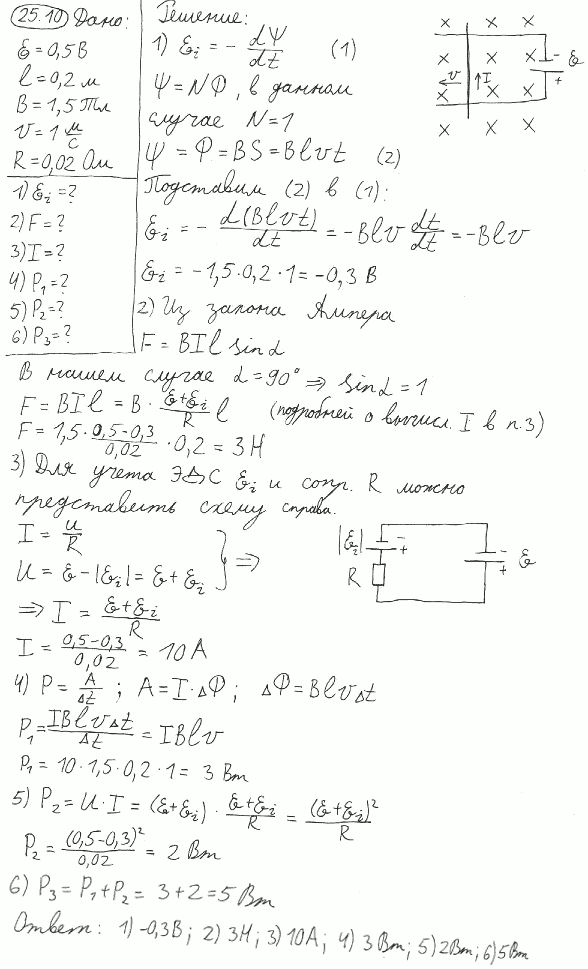 25.10 Дано:
ℰ = 0,5 В
l = 0,2 м
B = 1,5 Тл
v = 1 м/с
R = 0,02 Ом
1) ℰi = ?
2) F = ?
3) I = ?
4) P₁ = ?
5) P₂ = ?
6) P₃ = ?
Решение:
1) ℰi = - dΨ/dt (1)
Ψ = NΦ, в данном
случае N = 1
Ψ = Φ = BS = Blvt (2)
Подставим (2) в (1):
ℰi = - d(Blvt)/dt = -Blv dt/dt = -Blv
ℰi = -1,5·0,2·1 = -0,3 В
2) Из закона Ампера
F = BIl sinα
× × ×
× × × - ℰ
v I × × +
× × ×
× × × ×
В нашем случае α = 90° ⇒ sinα = 1
F = BIl = B · (ℰ+ℰi)/R l (подробней о вычисл. I в п.3)
F = 1,5 · (0,5-0,3)/0,02 · 0,2 = 3 Н
3) Для учета ЭДС ℰi и сопр. R можно
представить схему справа.
I = U/R
U = ℰ - |ℰi| = ℰ + ℰi } ⇒
⇒ I = (ℰ+ℰi)/R
I = (0,5-0,3)/0,02 = 10 А
|ℰi| - + - + ℰ
R
4) P = A/Δt ; A = I·ΔΦ ; ΔΦ = BlvΔt
P₁ = IBlvΔt/Δt = IBlv
P₁ = 10·1,5·0,2·1 = 3 Вт
5) P₂ = U·I = (ℰ+ℰi) · (ℰ+ℰi)/R = (ℰ+ℰi)²/R
P₂ = (0,5-0,3)²/0,02 = 2 Вт
6) P₃ = P₁ + P₂ = 3 + 2 = 5 Вт
Ответ: 1) -0,3В; 2) 3Н; 3) 10А; 4) 3Вт; 5) 2Вт; 6) 5Вт